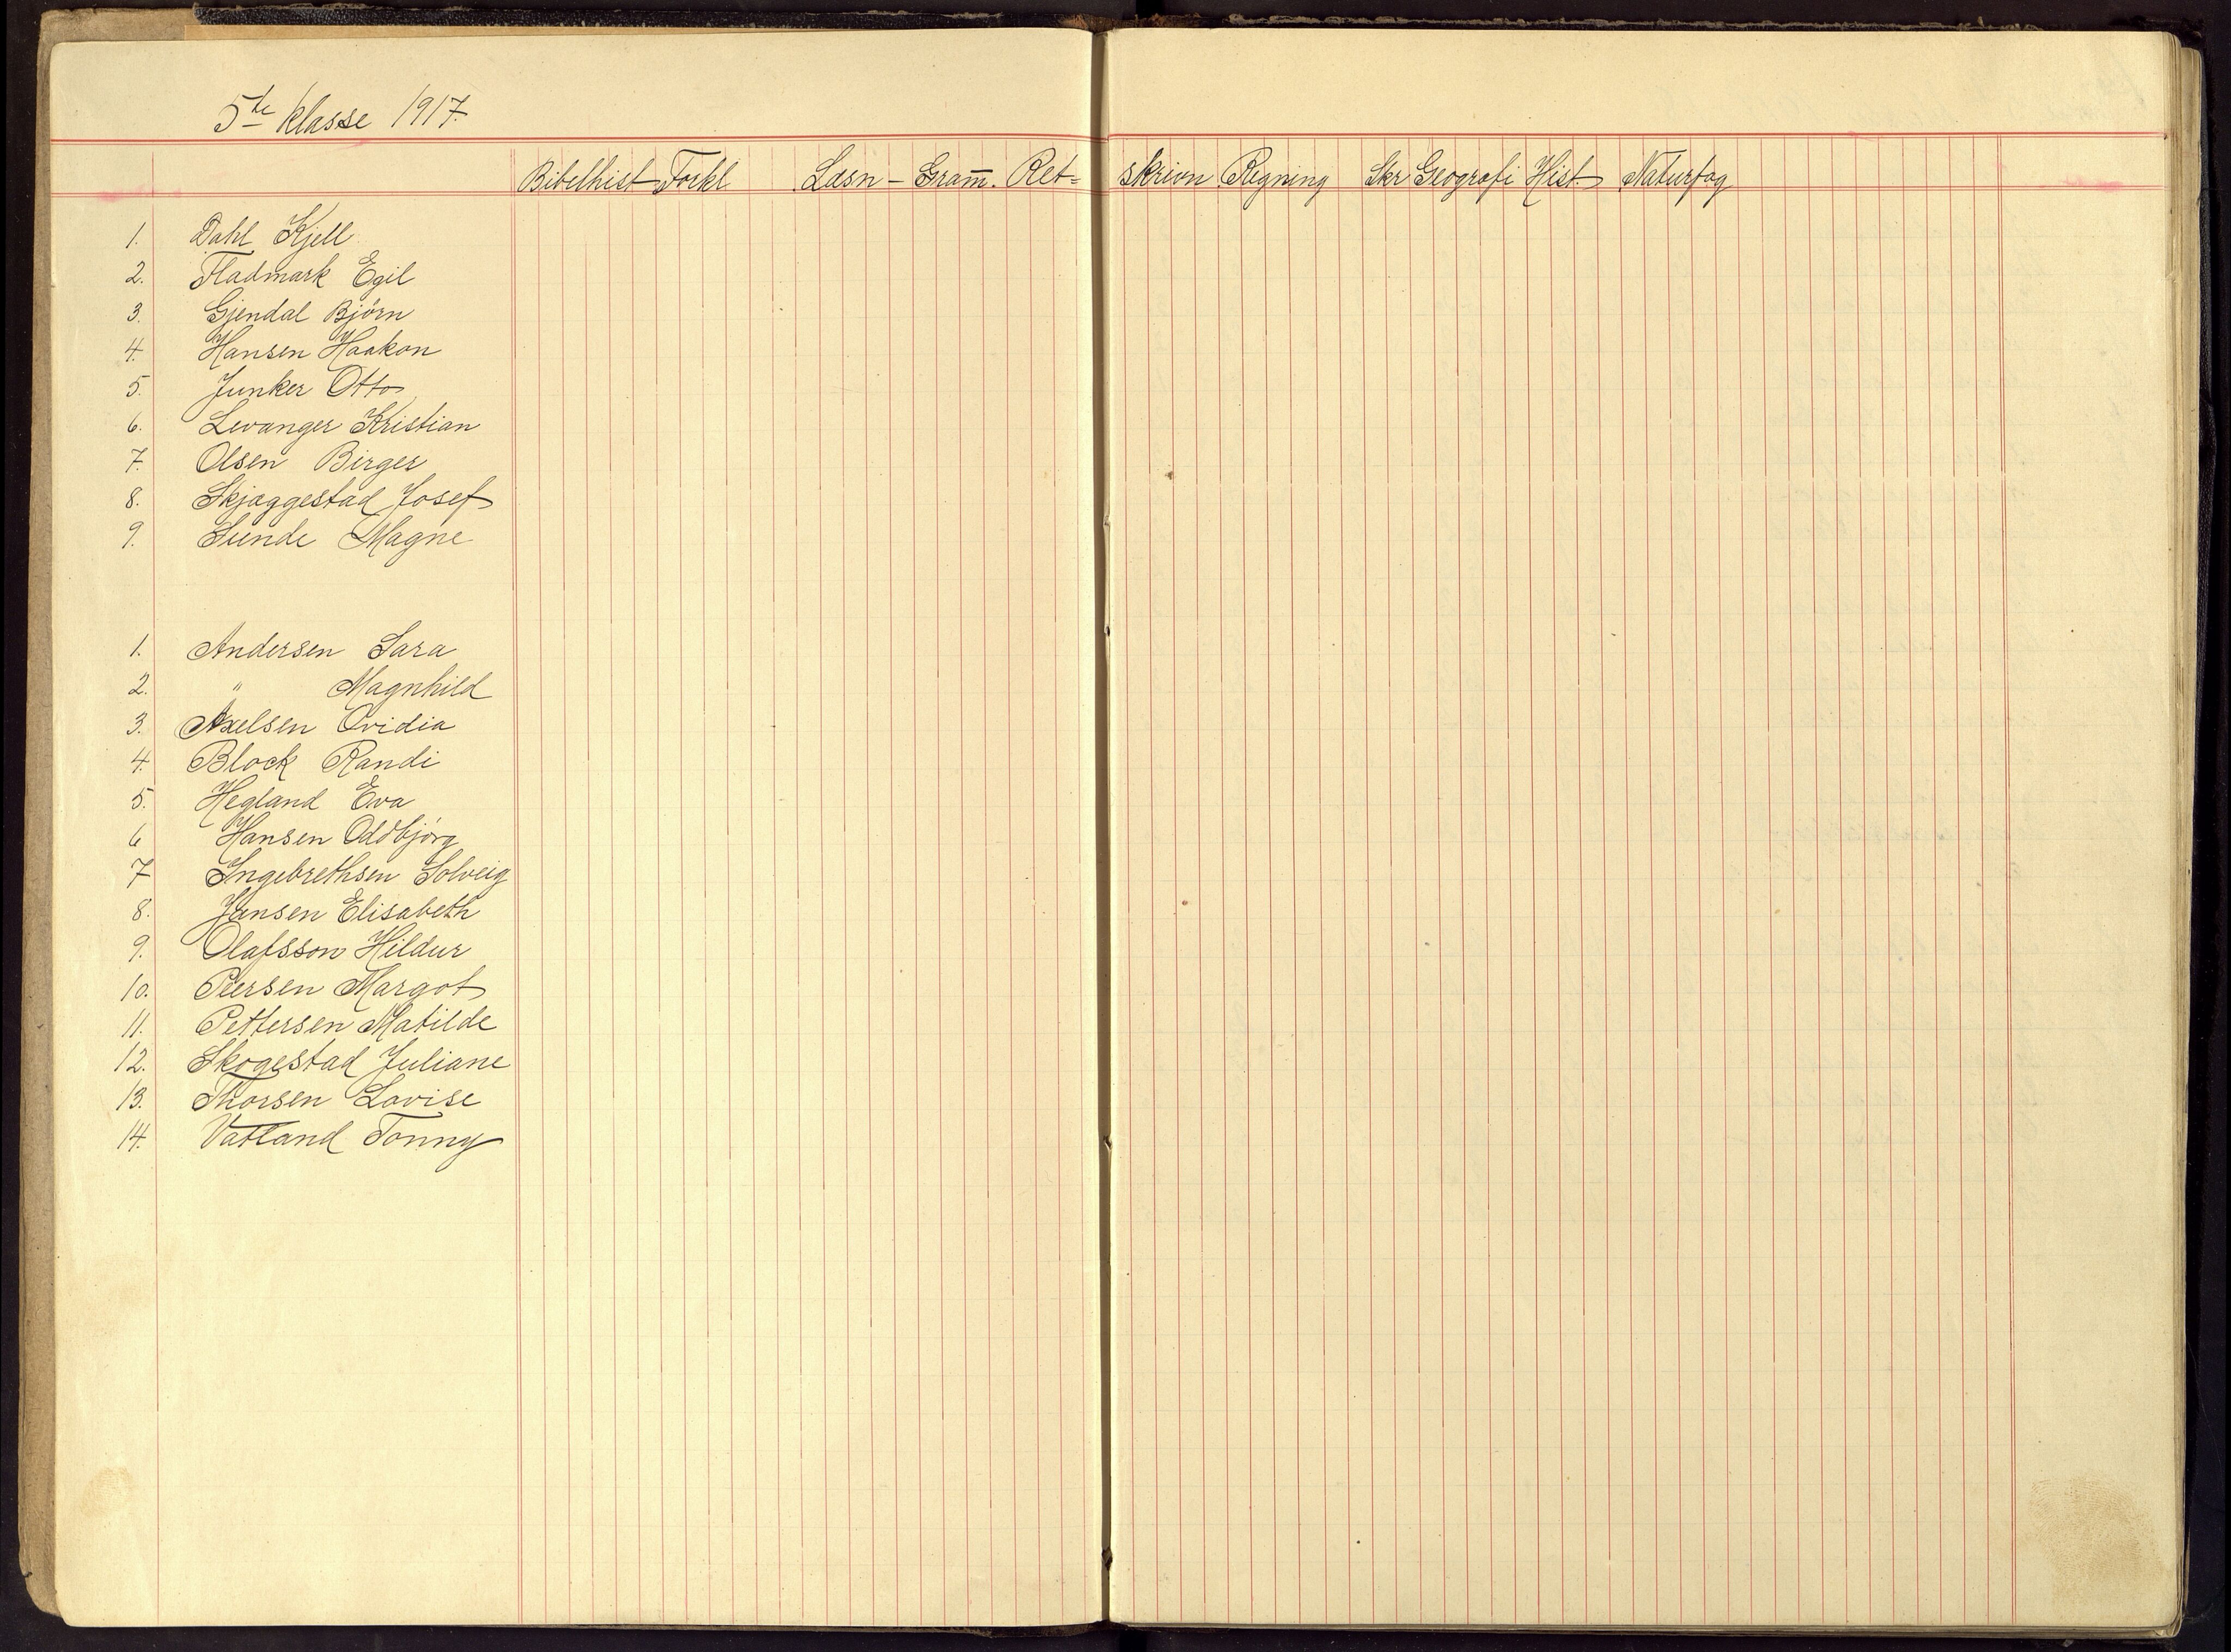 5te klasse 1917.
Bibelhist Forkl Læsn - Gram̄. Ret= skrivn Regning Skr Geografi Hist. Naturfag
1. Dahl Kjell
2. Fladmark Egil
3. Gjendal Bjørn
4. Hansen Haakon
5. Junker Otto
6. Levanger Kristian
7. Olsen Birger
8. Skjæggestad Josef
9. Sunde Magne
1. Andersen Sara
2. " Magnhild
3. Axelsen Ovidia
4. Block Randi
5. Hegland Eva
6 Hansen Oddbjørg
7 Ingebrethsen Solveig
8. Jensen Elisabeth
9. Olafsson Hildur
10. Peersen Margot
11. Pettersen Matilde
12. Skogestad Juliane
13. Thorsen Lovise
14. Vatland Tonny